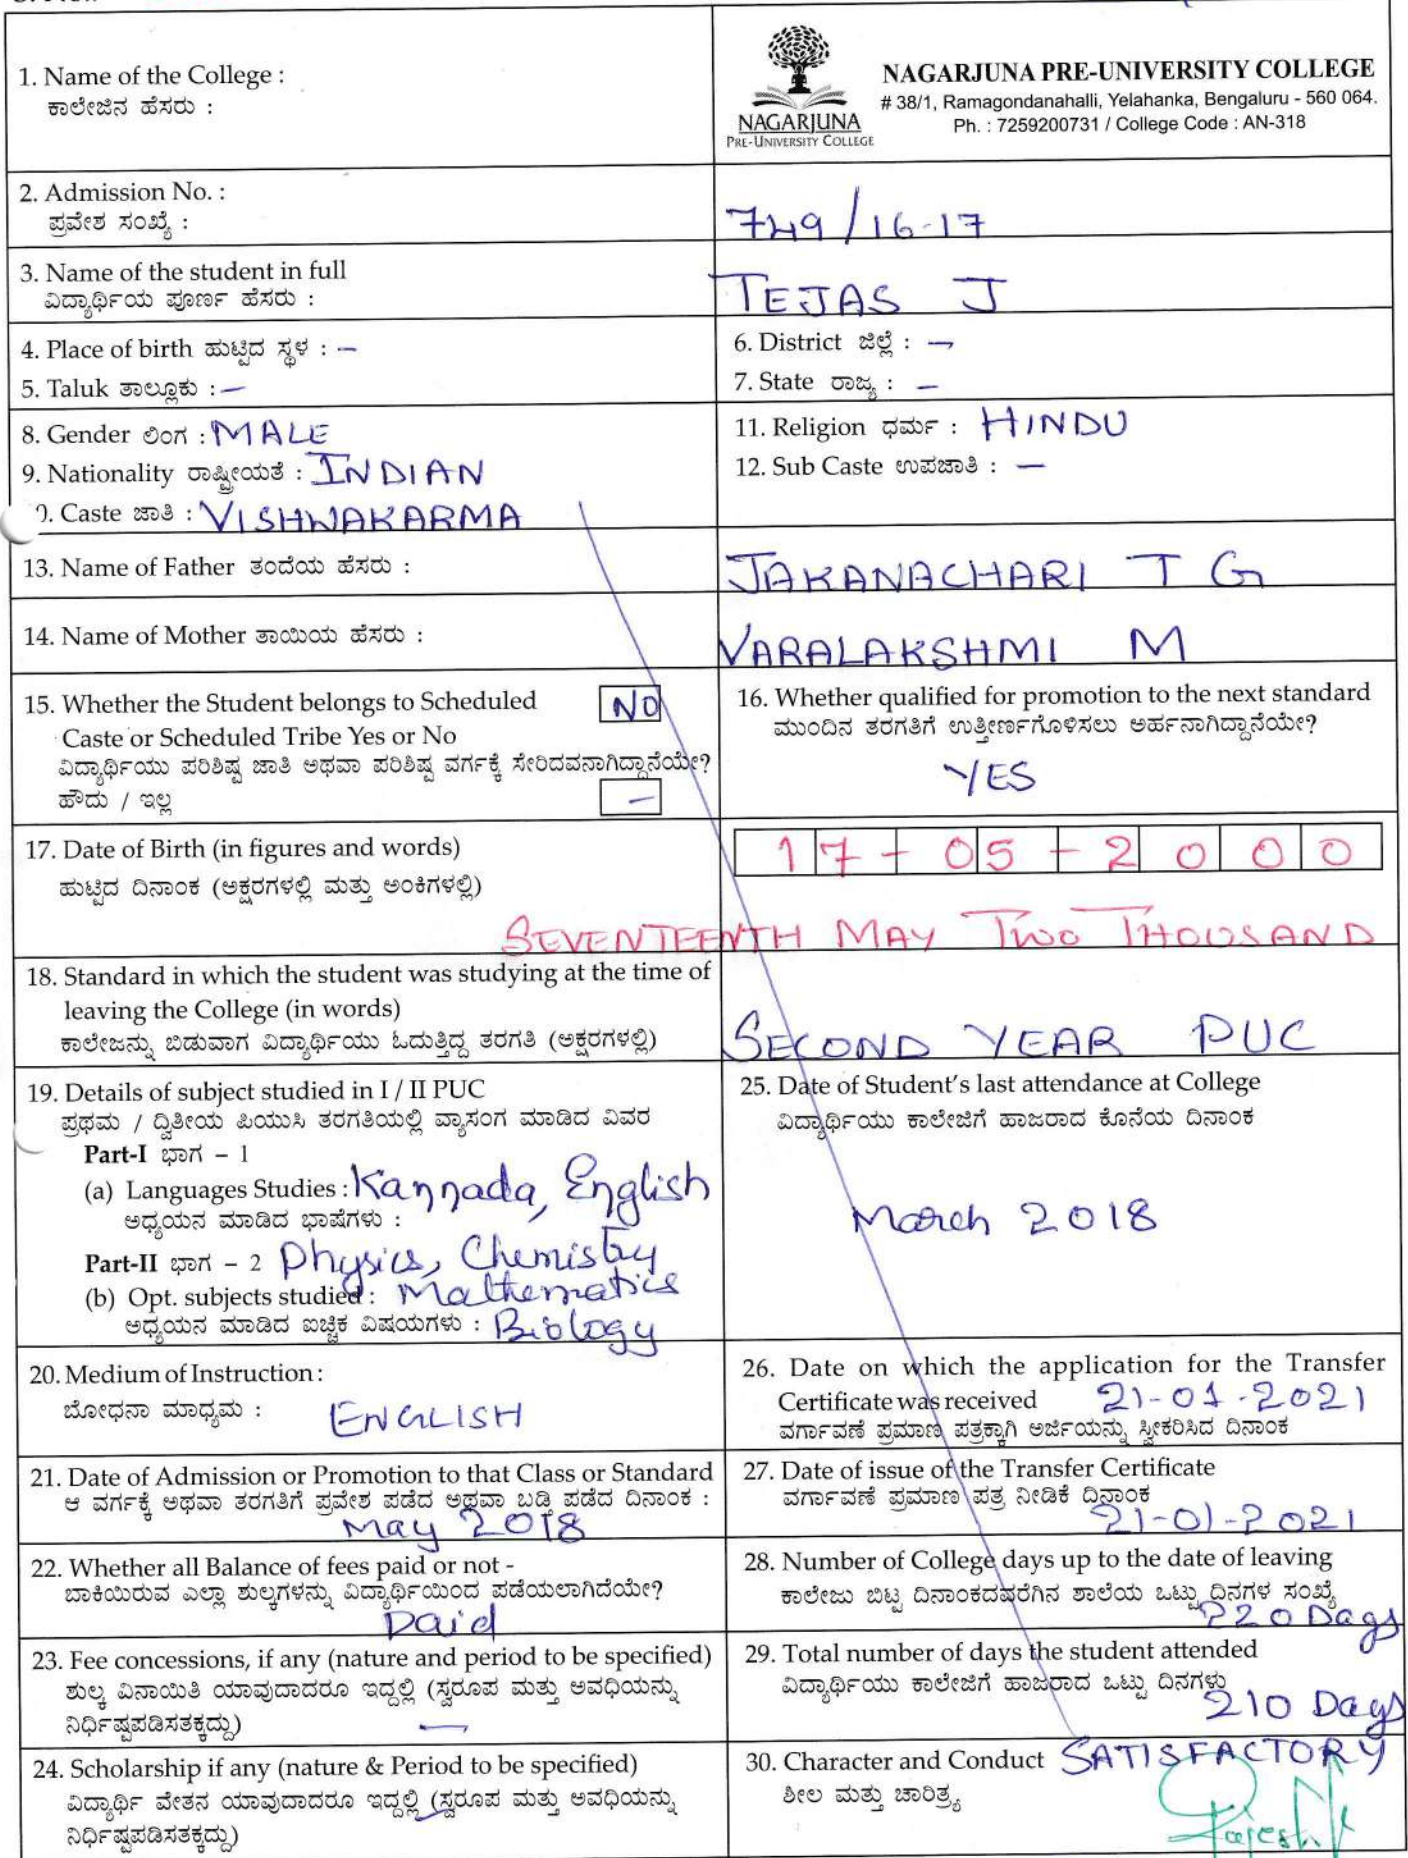 1. Name of the College :
ಕಾಲೇಜಿನ ಹೆಸರು :
NAGARJUNA
PRE-UNIVERSITY COLLEGE
NAGARJUNA PRE-UNIVERSITY COLLEGE
# 38/1, Ramagondanahalli, Yelahanka, Bengaluru - 560 064.
Ph. : 7259200731 / College Code : AN-318
2. Admission No. :
ಪ್ರವೇಶ ಸಂಖ್ಯೆ :
749/16-17
3. Name of the student in full
ವಿದ್ಯಾರ್ಥಿಯ ಪೂರ್ಣ ಹೆಸರು :
TEJAS J
4. Place of birth ಹುಟ್ಟಿದ ಸ್ಥಳ : –
5. Taluk ತಾಲ್ಲೂಕು : –
6. District ಜಿಲ್ಲೆ : –
7. State ರಾಜ್ಯ : –
8. Gender ಲಿಂಗ : MALE
9. Nationality ರಾಷ್ಟ್ರೀಯತೆ : INDIAN
0. Caste ಜಾತಿ : VISHWAKARMA
11. Religion ಧರ್ಮ : HINDU
12. Sub Caste ಉಪಜಾತಿ : –
13. Name of Father ತಂದೆಯ ಹೆಸರು :
JAKANACHARI T G
14. Name of Mother ತಾಯಿಯ ಹೆಸರು :
VARALAKSHMI M
15. Whether the Student belongs to Scheduled NO
Caste or Scheduled Tribe Yes or No
ವಿದ್ಯಾರ್ಥಿಯು ಪರಿಶಿಷ್ಟ ಜಾತಿ ಅಥವಾ ಪರಿಶಿಷ್ಟ ವರ್ಗಕ್ಕೆ ಸೇರಿದವನಾಗಿದ್ದಾನೆಯೇ?
ಹೌದು / ಇಲ್ಲ –
16. Whether qualified for promotion to the next standard
ಮುಂದಿನ ತರಗತಿಗೆ ಉತ್ತೀರ್ಣಗೊಳಿಸಲು ಅರ್ಹನಾಗಿದ್ದಾನೆಯೇ?
YES
17. Date of Birth (in figures and words)
ಹುಟ್ಟಿದ ದಿನಾಂಕ (ಅಕ್ಷರಗಳಲ್ಲಿ ಮತ್ತು ಅಂಕಿಗಳಲ್ಲಿ)
17-05-2000
SEVENTEENTH MAY TWO THOUSAND
18. Standard in which the student was studying at the time of
leaving the College (in words)
ಕಾಲೇಜನ್ನು ಬಿಡುವಾಗ ವಿದ್ಯಾರ್ಥಿಯು ಓದುತ್ತಿದ್ದ ತರಗತಿ (ಅಕ್ಷರಗಳಲ್ಲಿ)
SECOND YEAR PUC
19. Details of subject studied in I / II PUC
ಪ್ರಥಮ / ದ್ವಿತೀಯ ಪಿಯುಸಿ ತರಗತಿಯಲ್ಲಿ ವ್ಯಾಸಂಗ ಮಾಡಿದ ವಿವರ
Part-I ಭಾಗ – 1
(a) Languages Studies : Kannada, English
ಅಧ್ಯಯನ ಮಾಡಿದ ಭಾಷೆಗಳು :
Part-II ಭಾಗ – 2 Physics, Chemistry
(b) Opt. subjects studied : Mathematics
ಅಧ್ಯಯನ ಮಾಡಿದ ಐಚ್ಛಿಕ ವಿಷಯಗಳು : Biology
25. Date of Student's last attendance at College
ವಿದ್ಯಾರ್ಥಿಯು ಕಾಲೇಜಿಗೆ ಹಾಜರಾದ ಕೊನೆಯ ದಿನಾಂಕ
March 2018
20. Medium of Instruction :
ಬೋಧನಾ ಮಾಧ್ಯಮ : ENGLISH
26. Date on which the application for the Transfer
Certificate was received 21-01-2021
ವರ್ಗಾವಣೆ ಪ್ರಮಾಣ ಪತ್ರಕ್ಕಾಗಿ ಅರ್ಜಿಯನ್ನು ಸ್ವೀಕರಿಸಿದ ದಿನಾಂಕ
21. Date of Admission or Promotion to that Class or Standard
ಆ ವರ್ಗಕ್ಕೆ ಅಥವಾ ತರಗತಿಗೆ ಪ್ರವೇಶ ಪಡೆದ ಅಥವಾ ಬಡ್ತಿ ಪಡೆದ ದಿನಾಂಕ :
May 2018
27. Date of issue of the Transfer Certificate
ವರ್ಗಾವಣೆ ಪ್ರಮಾಣ ಪತ್ರ ನೀಡಿಕೆ ದಿನಾಂಕ
21-01-2021
22. Whether all Balance of fees paid or not -
ಬಾಕಿಯಿರುವ ಎಲ್ಲಾ ಶುಲ್ಕಗಳನ್ನು ವಿದ್ಯಾರ್ಥಿಯಿಂದ ಪಡೆಯಲಾಗಿದೆಯೇ?
Paid
28. Number of College days up to the date of leaving
ಕಾಲೇಜು ಬಿಟ್ಟ ದಿನಾಂಕದವರೆಗಿನ ಶಾಲೆಯ ಒಟ್ಟು ದಿನಗಳ ಸಂಖ್ಯೆ
220 Days
23. Fee concessions, if any (nature and period to be specified)
ಶುಲ್ಕ ವಿನಾಯಿತಿ ಯಾವುದಾದರೂ ಇದ್ದಲ್ಲಿ (ಸ್ವರೂಪ ಮತ್ತು ಅವಧಿಯನ್ನು
ನಿರ್ಧಿಷ್ಟಪಡಿಸತಕ್ಕದ್ದು) –
29. Total number of days the student attended
ವಿದ್ಯಾರ್ಥಿಯು ಕಾಲೇಜಿಗೆ ಹಾಜರಾದ ಒಟ್ಟು ದಿನಗಳು
210 Days
24. Scholarship if any (nature & Period to be specified)
ವಿದ್ಯಾರ್ಥಿ ವೇತನ ಯಾವುದಾದರೂ ಇದ್ದಲ್ಲಿ (ಸ್ವರೂಪ ಮತ್ತು ಅವಧಿಯನ್ನು
ನಿರ್ಧಿಷ್ಟಪಡಿಸತಕ್ಕದ್ದು)
30. Character and Conduct SATISFACTORY
ಶೀಲ ಮತ್ತು ಚಾರಿತ್ರ್ಯ